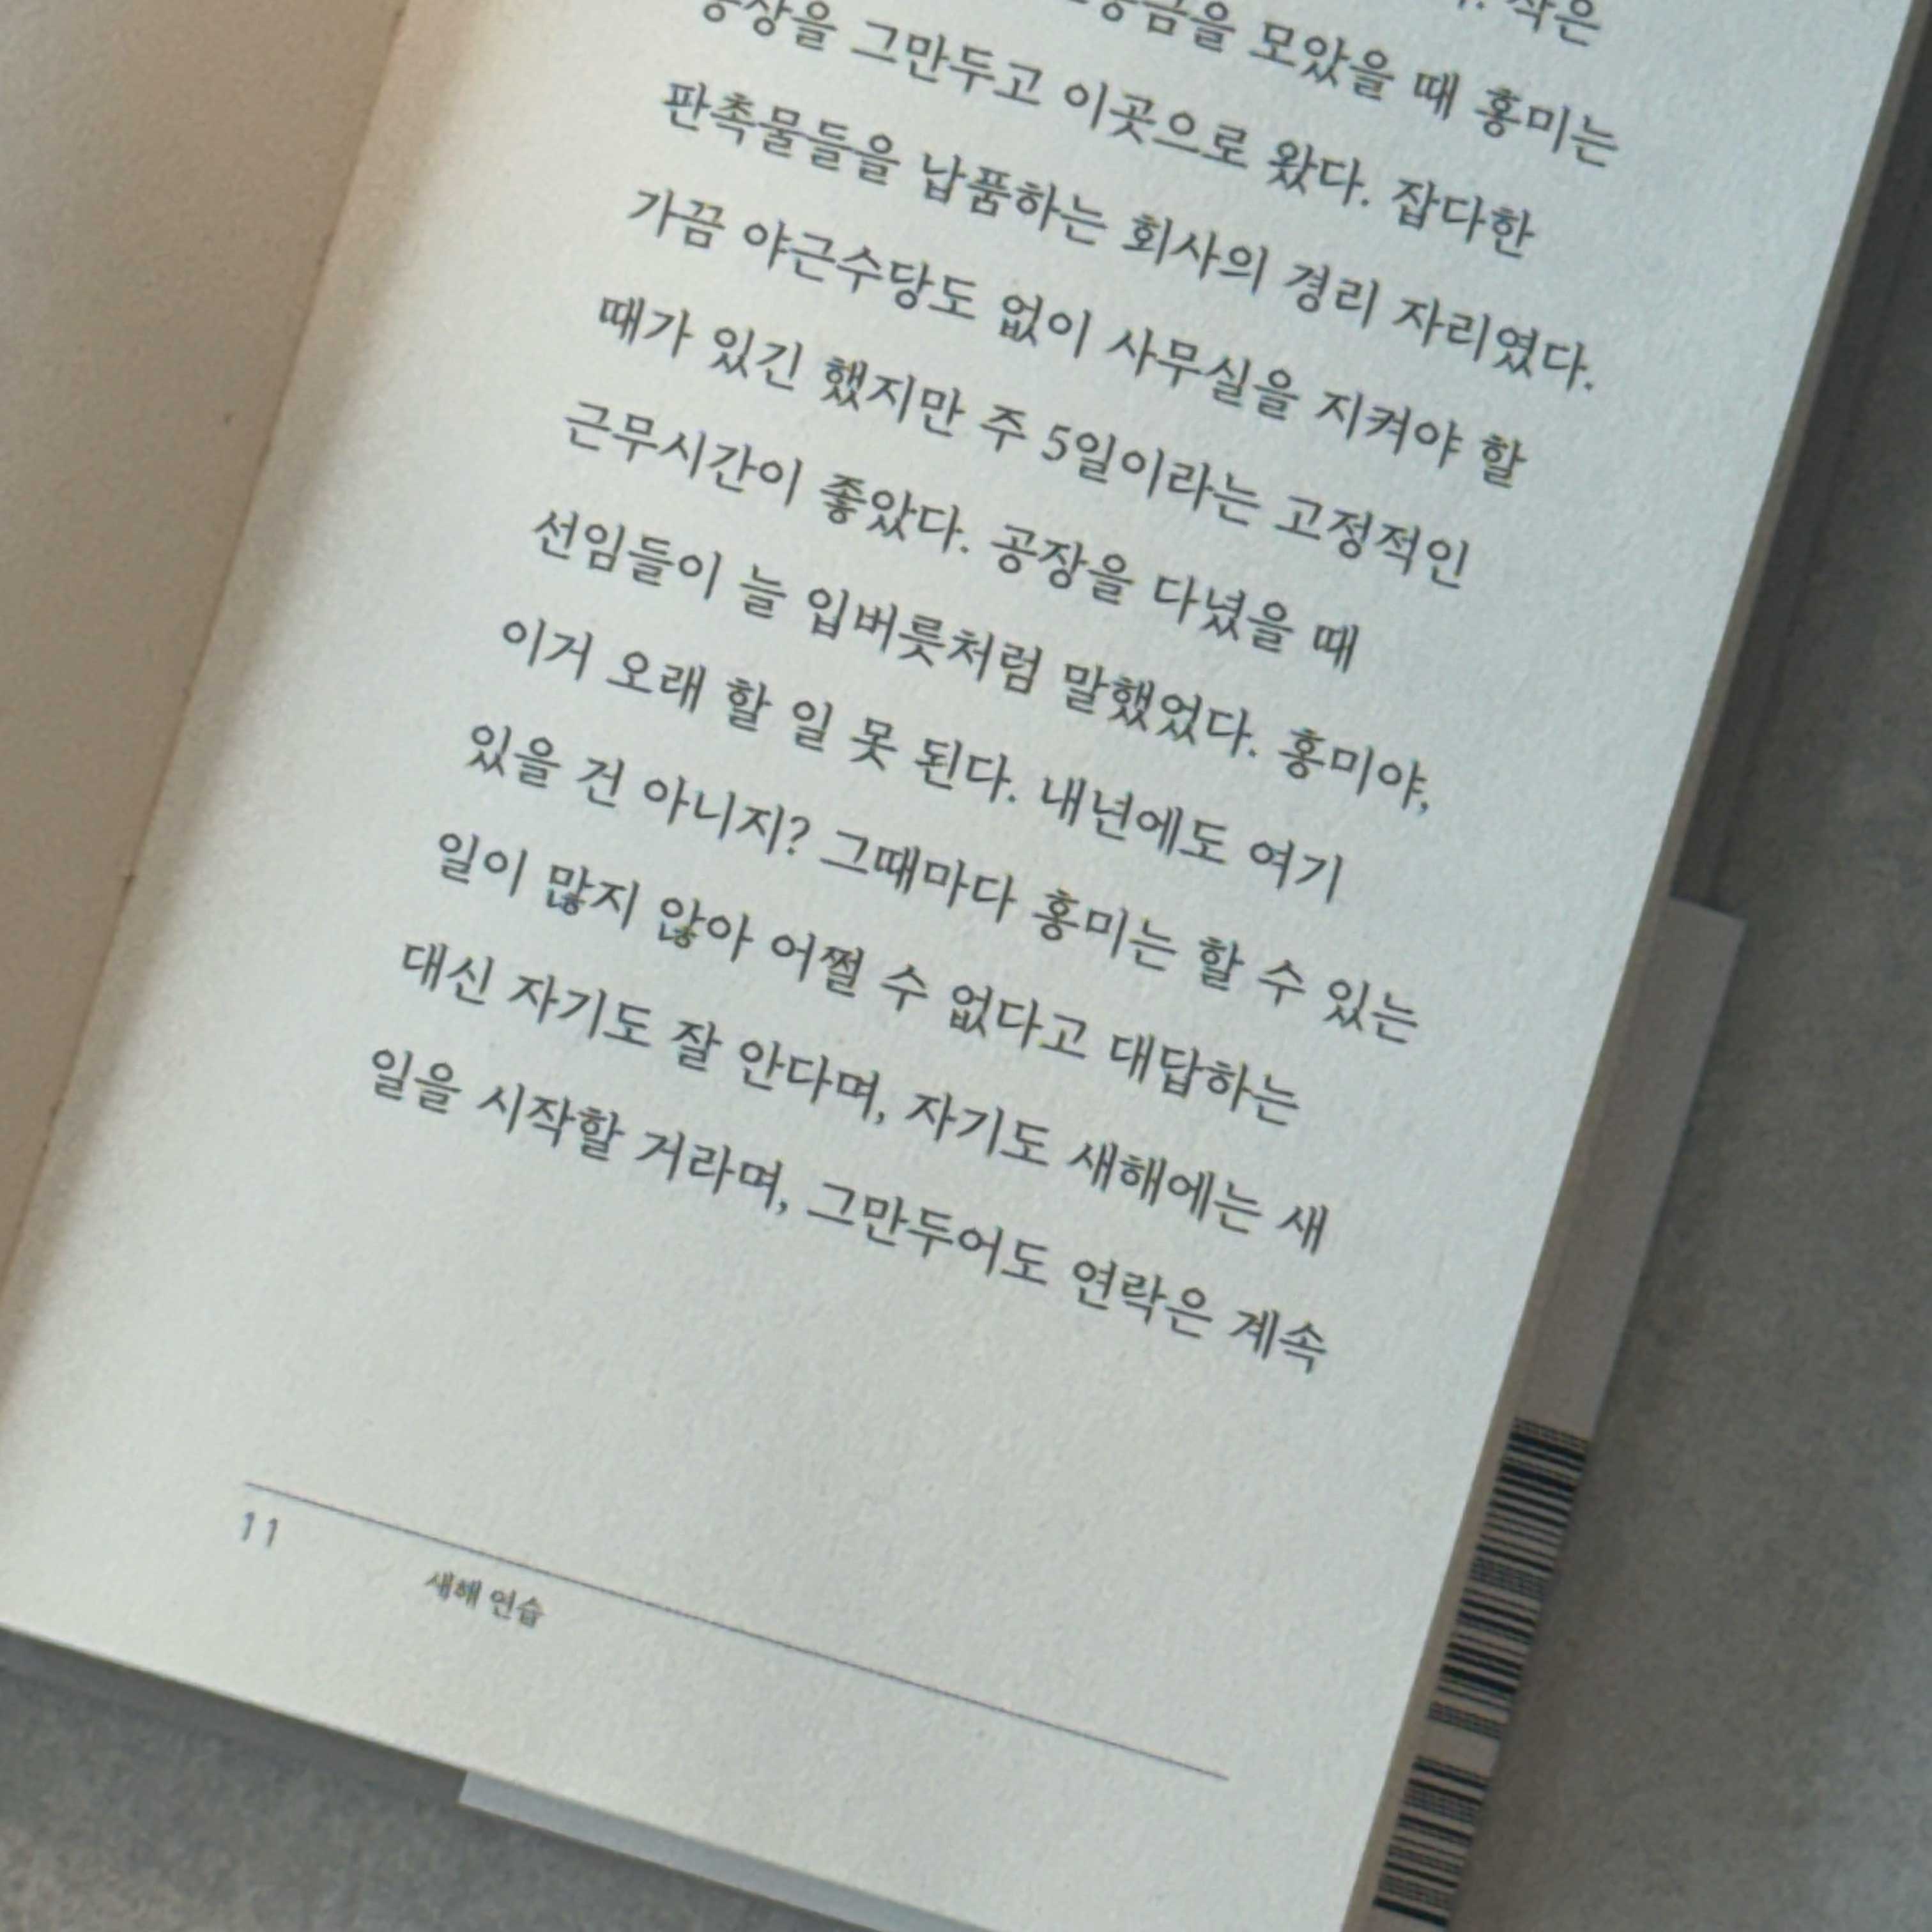 작은
모았을 때 홍미는
그만두고 이곳으로 왔다. 잡다한
판촉물들을 납품하는 회사의 경리 자리였다.
가끔 야근수당도 없이 사무실을 지켜야 할
때가 있긴 했지만 주 5일이라는 고정적인
근무시간이 좋았다. 공장을 다녔을 때
선임들이 늘 입버릇처럼 말했었다. 홍미야,
이거 오래 할 일 못 된다. 내년에도 여기
있을 건 아니지? 그때마다 홍미는 할 수 있는
일이 많지 않아 어쩔 수 없다고 대답하는
대신 자기도 잘 안다며, 자기도 새해에는 새
일을 시작할 거라며, 그만두어도 연락은 계속
11
새해 연습